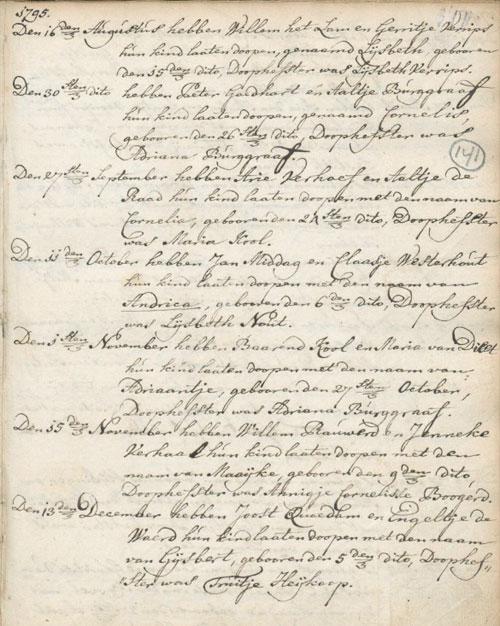 1795.
Den 16den Augustus hebben Willem het Lam en Gerritje Verrips
hun kind laaten doopen, genaamd Lijsbeth, gebooren
den 15den dito, Doophefster was Lijsbeth Verrips.
Den 30sten dito hebben Pieter en Aaltje Burggraaf
hun kind laaten doopen, genaamd Cornelis,
gebooren den 26sten dito, Doophefster was
Adriana Burggraaf.
141
Den 27sten September hebben Arie Verhoef en Aaltje de
Raad hun kind laaten doopen met den naam van
Cornelia, gebooren den 24sten dito, Doophefster
was Maria Kool.
Den 11den October hebben Jan Middag en Claasje Westerhout
hun kind laaten doopen met den naam van
Andrica, gebooren den 6den dito, Doophefster
was Lijsbeth Nout.
Den 1sten November hebben Baarend Kool en Maria van Dieet
hun kind laaten doopen met den naam van
Adriaantje, gebooren den 27sten October,
Doophefster was Adriana Burggraaf.
Den 15den November hebben Willem en Jenneke
Verhaal hun kind laaten doopen met den
naam van Maaijke, gebooren den 9den dito
Doophefster was Annigje Cornelisse Boogerd.
Den 13den December hebben Joost Quaedam en Engeltje de
Waerd hun kind laaten doopen met den naam
van Gijsbert, gebooren den 5den dito, Doophef=
ster was Truitje Heijkoop.